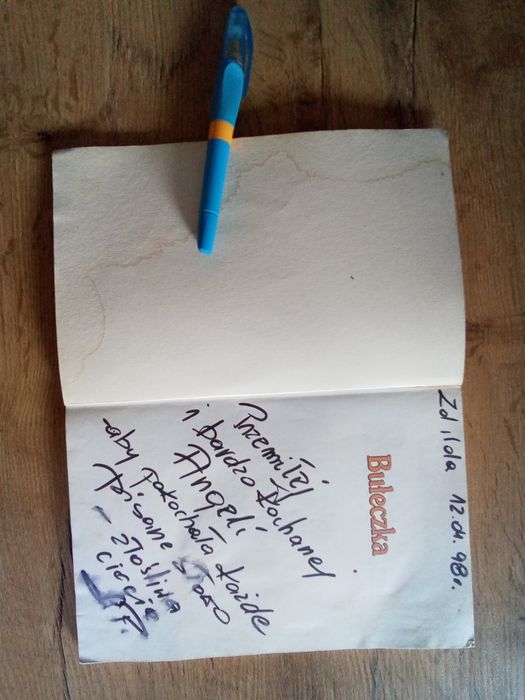 12.04.98r.
Bułeczka
Przemiłej
i bardzo Kochanej
Angeli
aby pokochała każde
pisane słowo
- złośliwa
ciocia